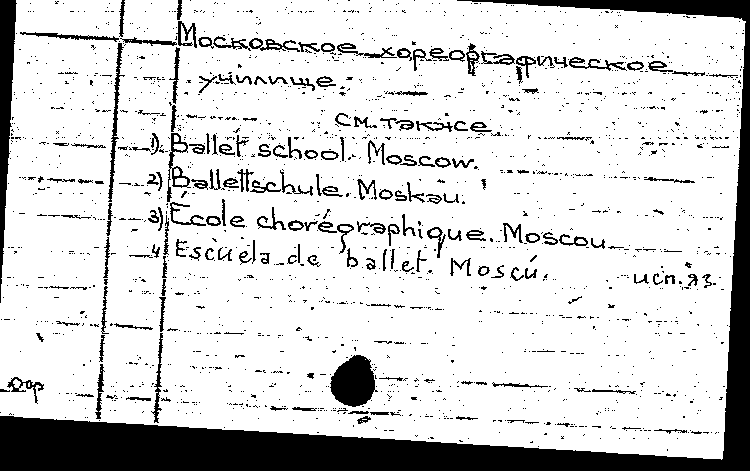 Московское хореографическое
училище.
см. также
1). Ballet school. Moscow.
2) Ballettschule. Moskau.
3) École chorégraphique. Moscou
4 Escuela de ballet. Moscú. исп. яз.